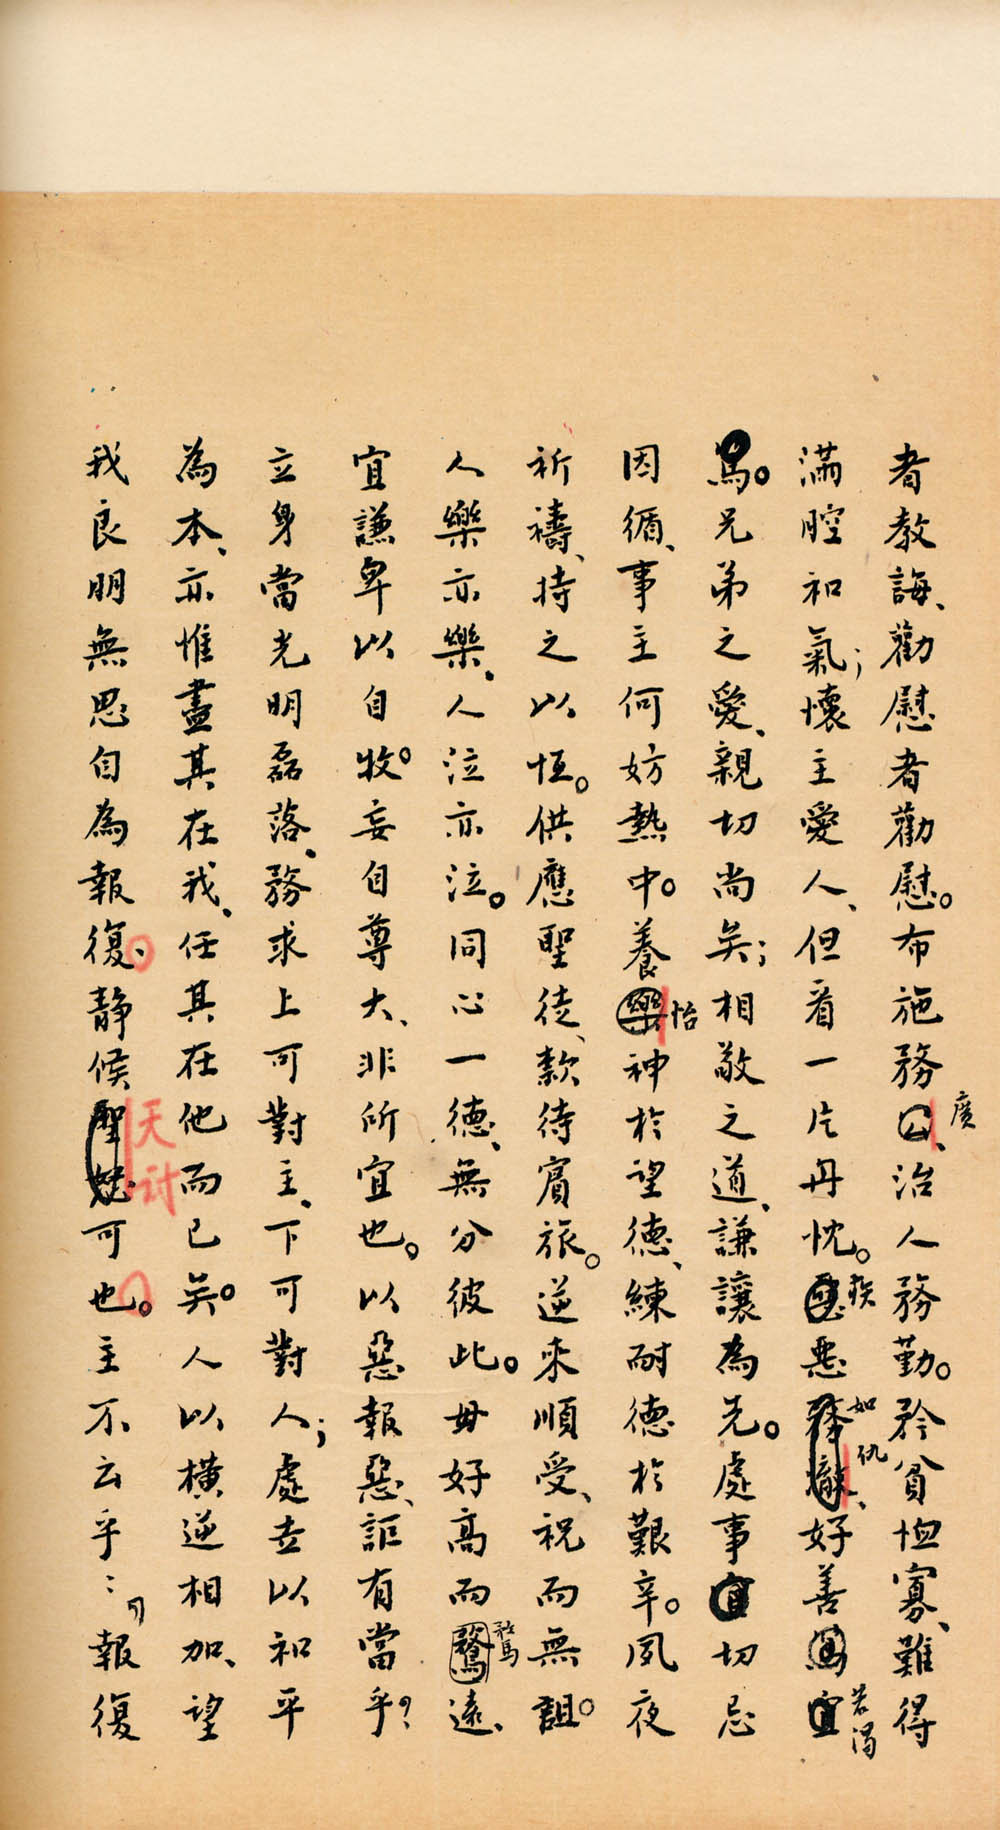 者教誨、勸慰者勸慰。布施務公、廣治人務勤。矜貧恤寡、難得
滿腔和氣；懷主愛人、但看一片丹忱。疾惡如仇、好善若渴
篤。兄弟之愛、親切尚矣；相敬之道、謙讓為先。處事宜切忌
因循、事主何妨熱中。養樂怡神於望德、練耐德於艱辛。夙夜
祈禱、持之以恆。供應聖徒、款待賓旅。逆來順受、祝而無詛。
人樂亦樂、人泣亦泣。同心一德、無分彼此。毋好高而鶩騖遠、
宜謙卑以自牧。妄自尊大、非所宜也。以惡報惡、詎有當乎？
立身當光明磊落、務求上可對主、下可對人；處世以和平
為本、亦惟盡其在我、任其在他而已矣。人以橫逆相加、望
我良朋無思自為報復。靜候聖天討可也。主不云乎：「報復